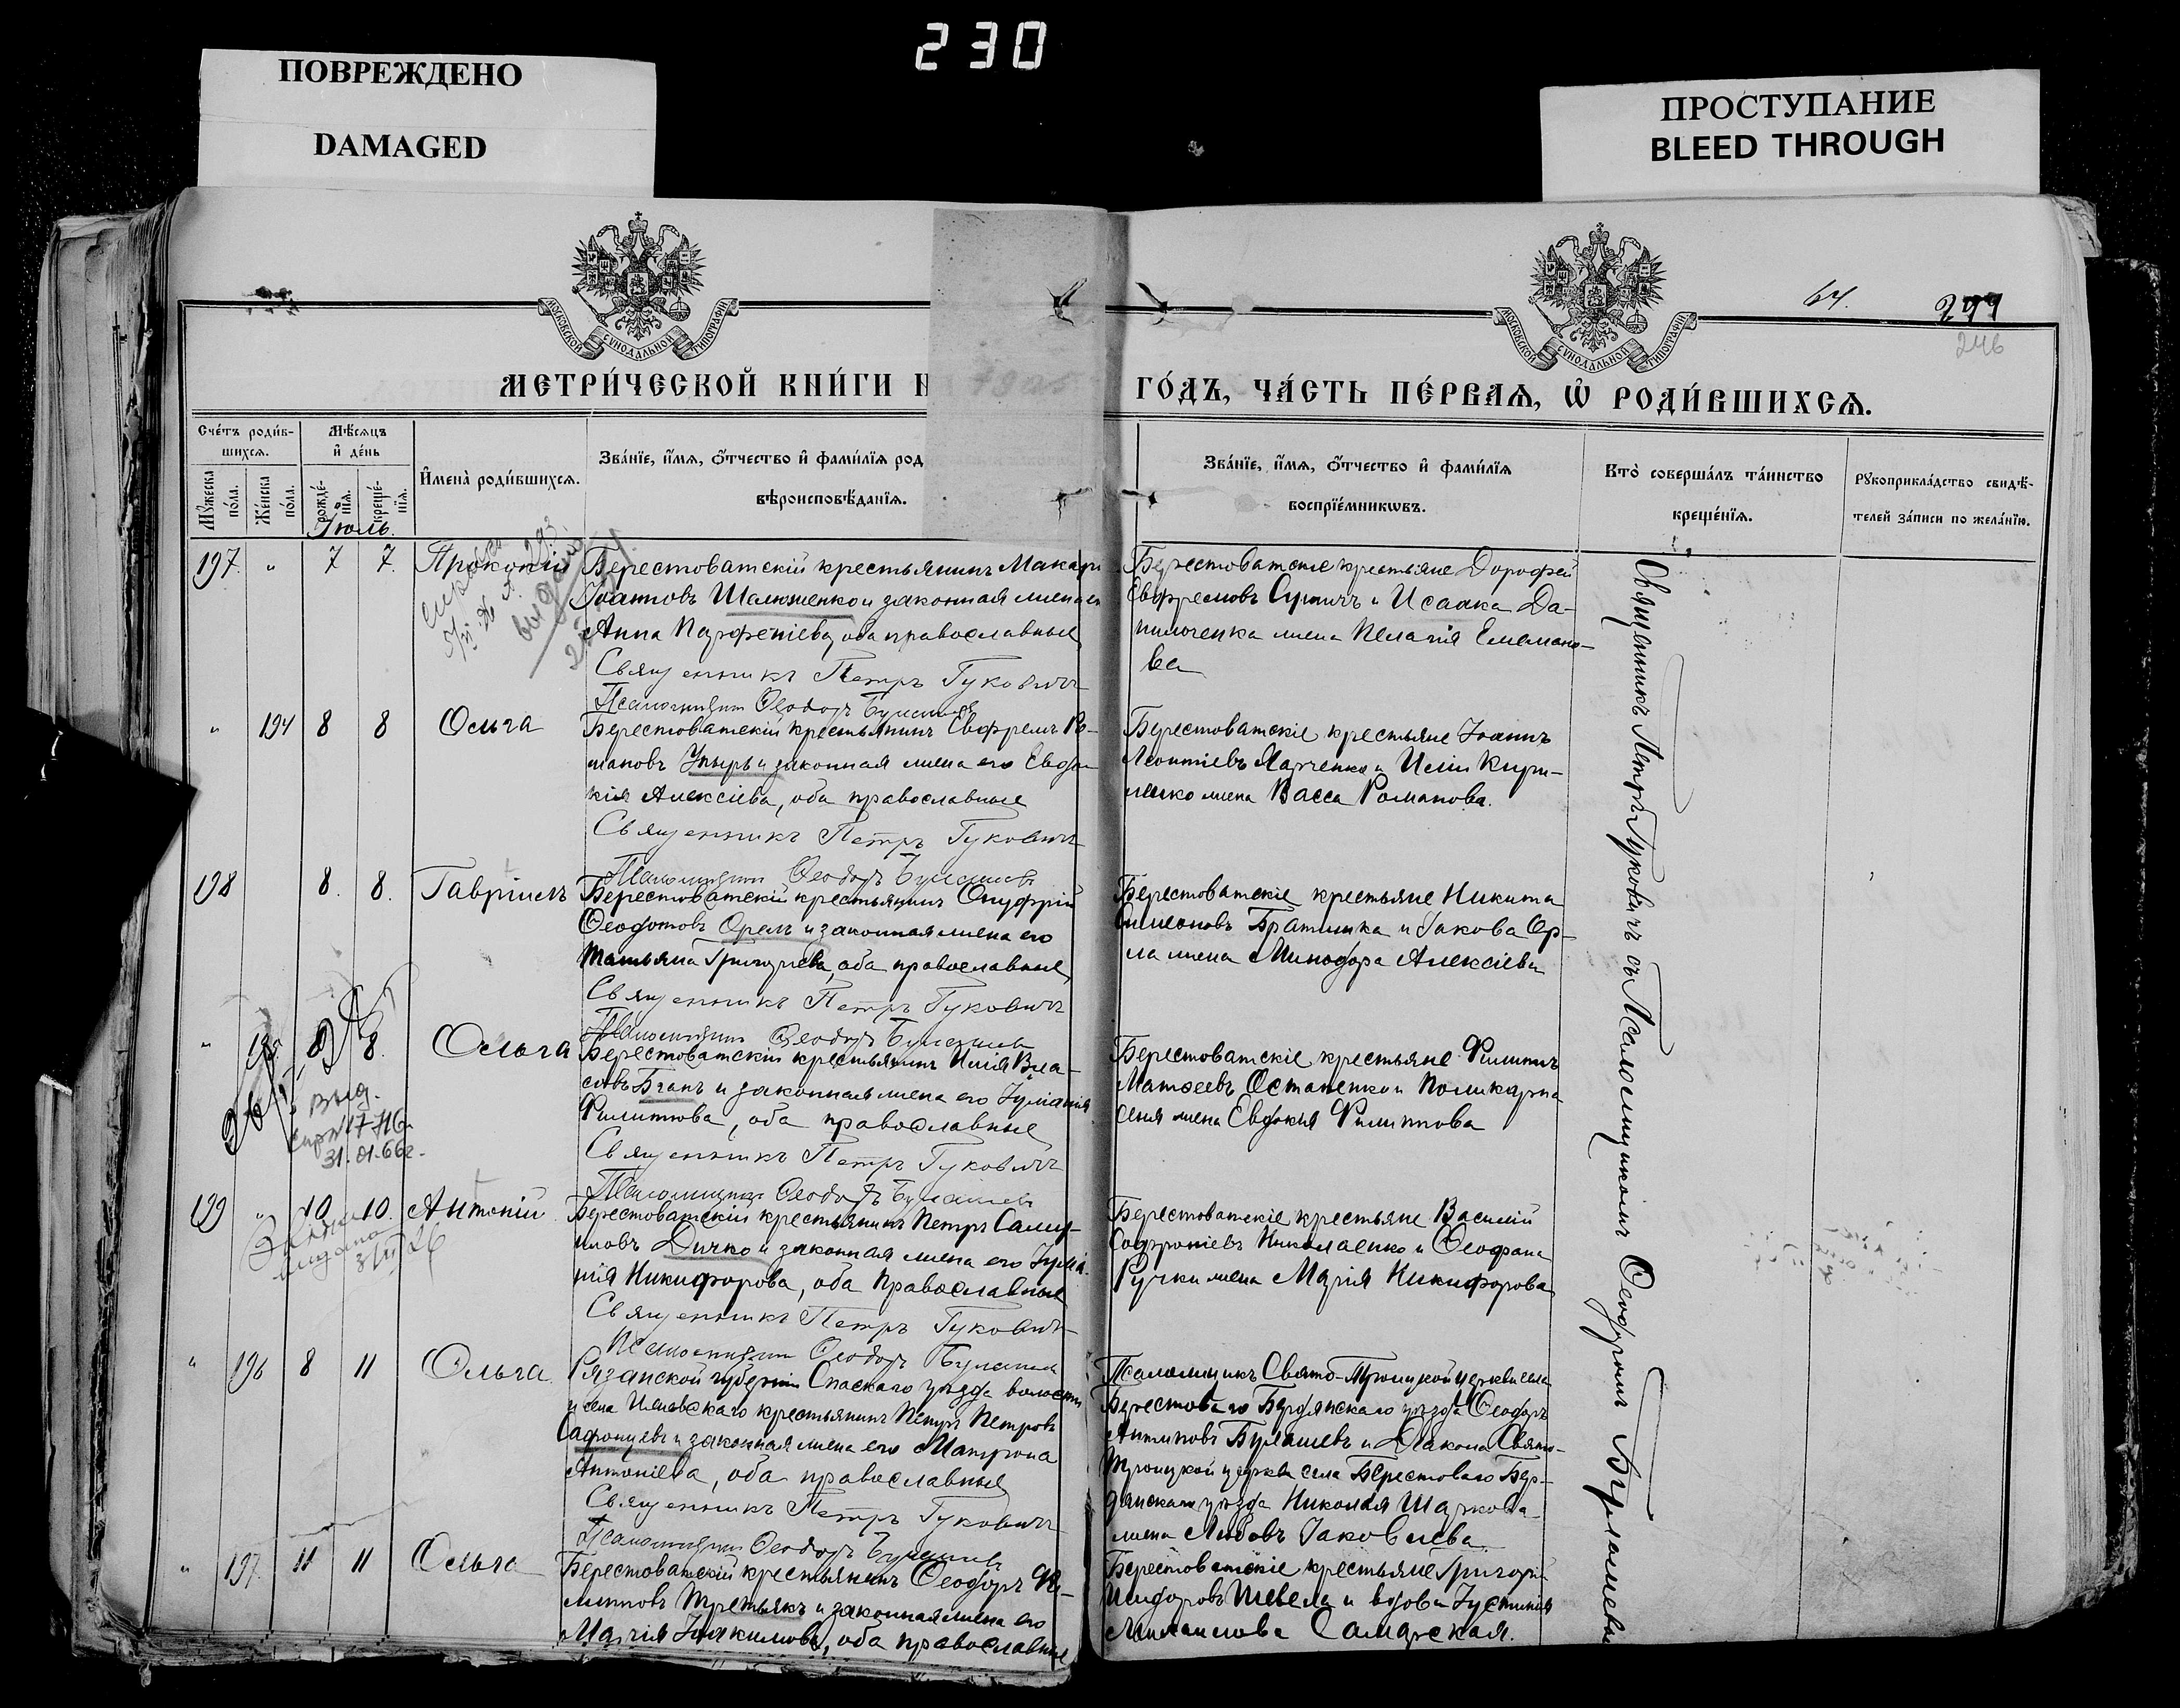 230
ПОВРЕЖДЕНО
DAMAGED
ПРОСТУПАНИЕ
BLEED THROUGH
МОСКОВСКОЙ СѴНОДАЛЬНОЙ ТИПОГРАФІИ
МОСКОВСКОЙ СѴНОДАЛЬНОЙ ТИПОГРАФІИ
64.
246
МЕТРИ́ЧЕСКОЙ КНИ́ГИ Н
ГО́ДЪ, ЧА́СТЬ ПЕ́РВАѦ, Ѡ҆ РОДИ́ВШИХСѦ.
Сче́тъ роди́в-
шихсѧ.
Мѣ́сѧцъ
и҆ де́нь
Мꙋ́жеска
по́ла.
Же́нска
по́ла.
рожде́-
нїѧ.
креще́-
нїѧ.
И҆мена̀ роди́вшихсѧ.
Зва́нїе, и҆́мѧ, ѻ҆́тчество и҆ фами́лїѧ род
вѣроисповѣ́данїѧ.
Зва́нїе, и҆́мѧ, ѻ҆́тчество и҆ фами́лїѧ
воспрїе́мникѡвъ.
Кто̀ соверша́лъ та́инство
креще́нїѧ.
Рꙋкоприкла́дство свидѣ́-
телей за́писи по жела́нїю.
Іюль.
197. " 7 7. Прокопій
Берестоватскій крестьянинъ Макарі
Іоанновъ Шалюженко и законная жена ег
Анна Парфеніева, оба православные
Священникъ Петръ Гуковичъ
Псаломщикъ Ѳеодоръ Бурлашевъ
Берестоватскіе крестьяне Дорофей
Евфремовъ и Исаака Да-
нильченка жена Пелагія Емельяно-
ва
выдано
" 194 8 8 Ольга
Берестоватскій крестьянинъ Евфремъ Ро-
мановъ Упырь и законная жена его Евдо-
кія Алексіева, оба православные
Священникъ Петръ Гуковичъ
Псаломщикъ Ѳеодоръ Бурлашевъ
Берестоватскіе крестьяне Іоаннъ
Леонтіевъ Харченко и Иліи Кири-
ленко жена Васса Романова.
198 8. 8. Гавріилъ
Берестоватскій крестьянинъ Онуфрій
Ѳеодотовъ Орелъ и законная жена его
Татьяна Григоріева, оба православные,
Священникъ Петръ Гуковичъ
Псаломщикъ Ѳеодоръ Бурлашевъ
Берестоватскіе крестьяне Никита
Симеоновъ Братишка и Іакова Ор-
ла жена Минодора Алексіева
" 195 8 8. Ольга
Берестоватскій крестьянинъ Илія Вла-
совъ Бганъ и законная жена его Іуліанія
Филиппова, оба православные
Священникъ Петръ Гуковичъ
Псаломщикъ Ѳеодоръ Бурлашевъ
Берестоватскіе крестьяне Филиппъ
Матѳеевъ Остапенко и Поликарпа
Сеня жена Евдокія Филиппова
31.01.66г.
199 " 10 10. Антоній
Берестоватскій крестьянинъ Петръ Саму-
иловъ Дичко и законная жена его Іуліа-
нія Никифорова, оба православные
Священникъ Петръ Гуковичъ
Псаломщикъ Ѳеодоръ Бурлашевъ
Берестоватскіе крестьяне Василій
Софроніевъ Николаенко и Ѳеофана
Ручки жена Марія Никифорова
" 196 8 11 Ольга
Рязанской губерніи Спаскаго уѣзда волости
и села Ижевскаго крестьянинъ Петръ Петровъ
Сафонцевъ и законная жена его Матрона
Антоніева, оба православные
Священникъ Петръ Гуковичъ
Псаломщикъ Ѳеодоръ Бурлашевъ
Псаломщикъ Свято-Троицкой церкви села
Берестоваго Бердянскаго уѣзда Ѳеодоръ
Бурлашевъ и Діакона Свято-
Троицкой церкви села Берестоваго Бер-
дянскаго уѣзда Николая Шаркова
жена Любовь Іаковлева.
" 197. 11 11 Ольга
Берестоватскій крестьянинъ Ѳеодоръ Фи-
липповъ Третьякъ и законная жена его
Марія Іоакимова, оба православные
Берестоватскіе крестьяне Григорій
Исидоровъ Шевела и вдова Іустинія
Михаилова Самарская.
Священникъ Петръ Гуковичъ съ Псаломщикомъ Ѳеодоромъ Бурлашевымъ